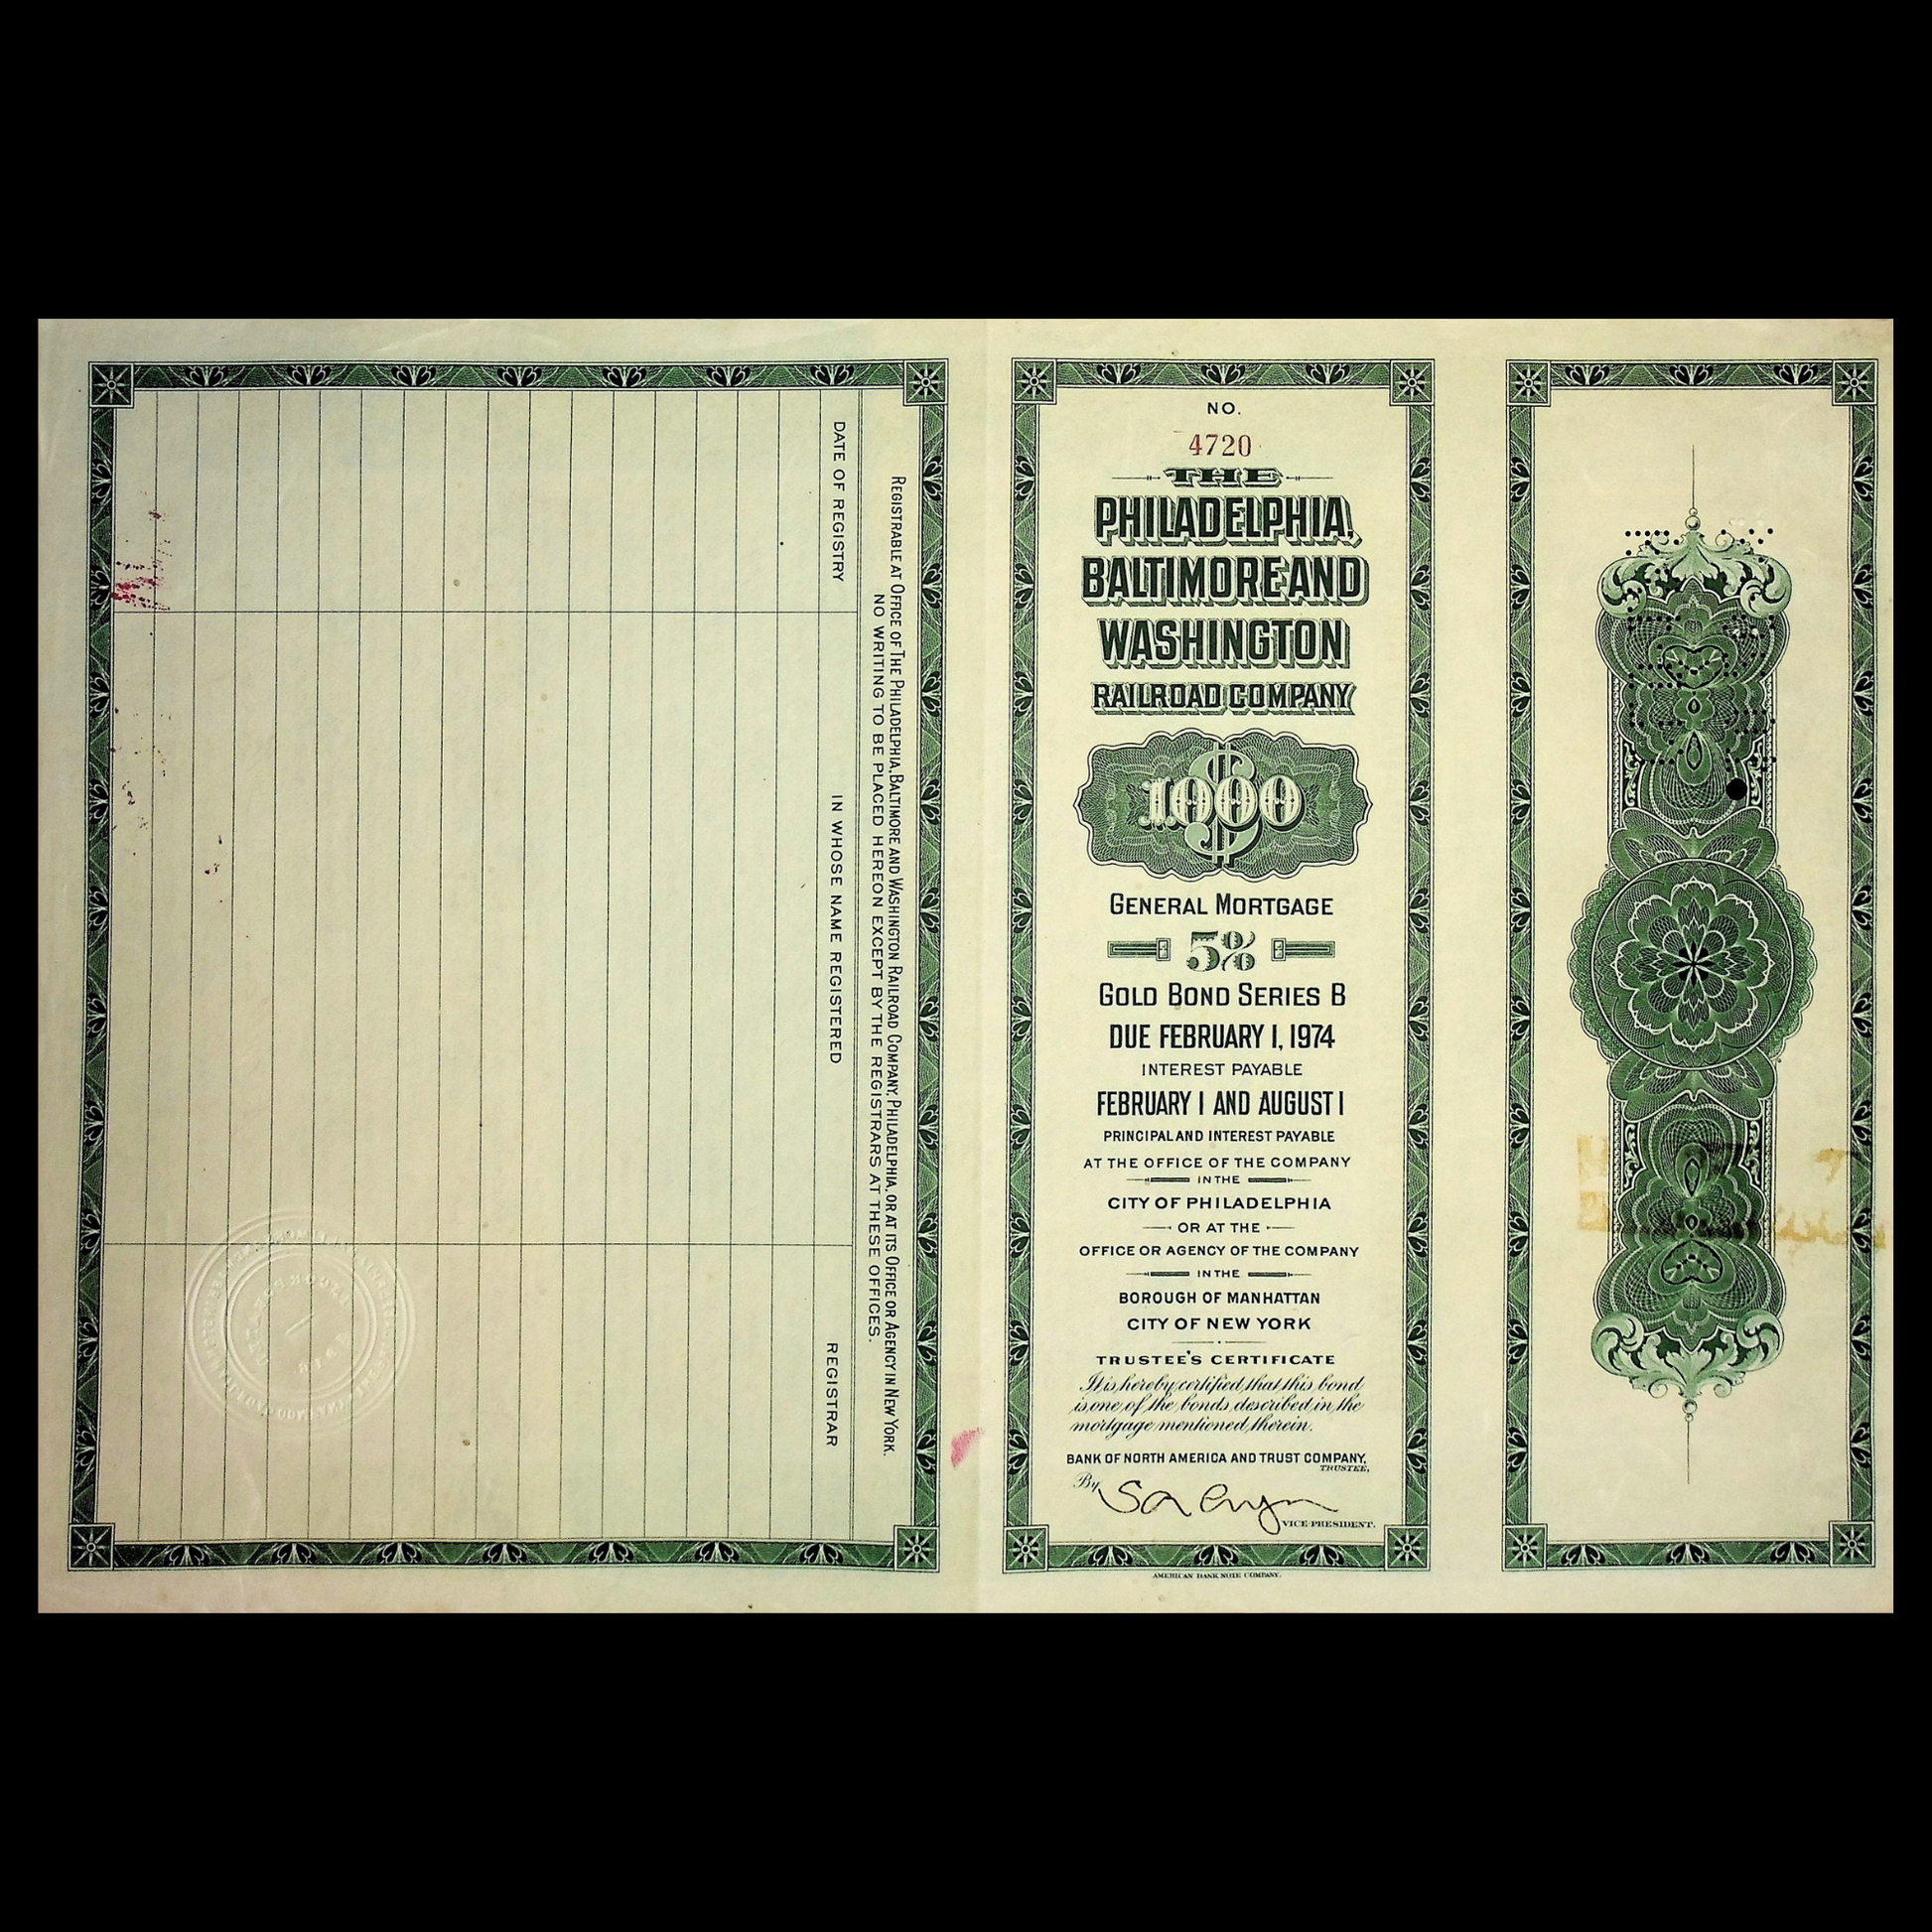 REGISTRABLE AT OFFICE OF THE PHILADELPHIA, BALTIMORE AND WASHINGTON RAILROAD COMPANY, PHILADELPHIA, OR AT ITS OFFICE OR AGENCY IN NEW YORK.
NO WRITING TO BE PLACED HEREON EXCEPT BY THE REGISTRARS AT THESE OFFICES.
DATE OF REGISTRY
IN WHOSE NAME REGISTERED
REGISTRAR
NO.
4720
THE
PHILADELPHIA,
BALTIMORE AND
WASHINGTON
RAILROAD COMPANY
$1,000
GENERAL MORTGAGE
5%
GOLD BOND SERIES B
DUE FEBRUARY 1, 1974
INTEREST PAYABLE
FEBRUARY 1 AND AUGUST 1
PRINCIPAL AND INTEREST PAYABLE
AT THE OFFICE OF THE COMPANY
IN THE
CITY OF PHILADELPHIA
OR AT THE
OFFICE OR AGENCY OF THE COMPANY
IN THE
BOROUGH OF MANHATTAN
CITY OF NEW YORK
TRUSTEE'S CERTIFICATE
It is hereby certified, that this bond
is one of the bonds described in the
mortgage mentioned therein.
BANK OF NORTH AMERICA AND TRUST COMPANY,
TRUSTEE,
By
VICE-PRESIDENT.
AMERICAN BANK NOTE COMPANY.